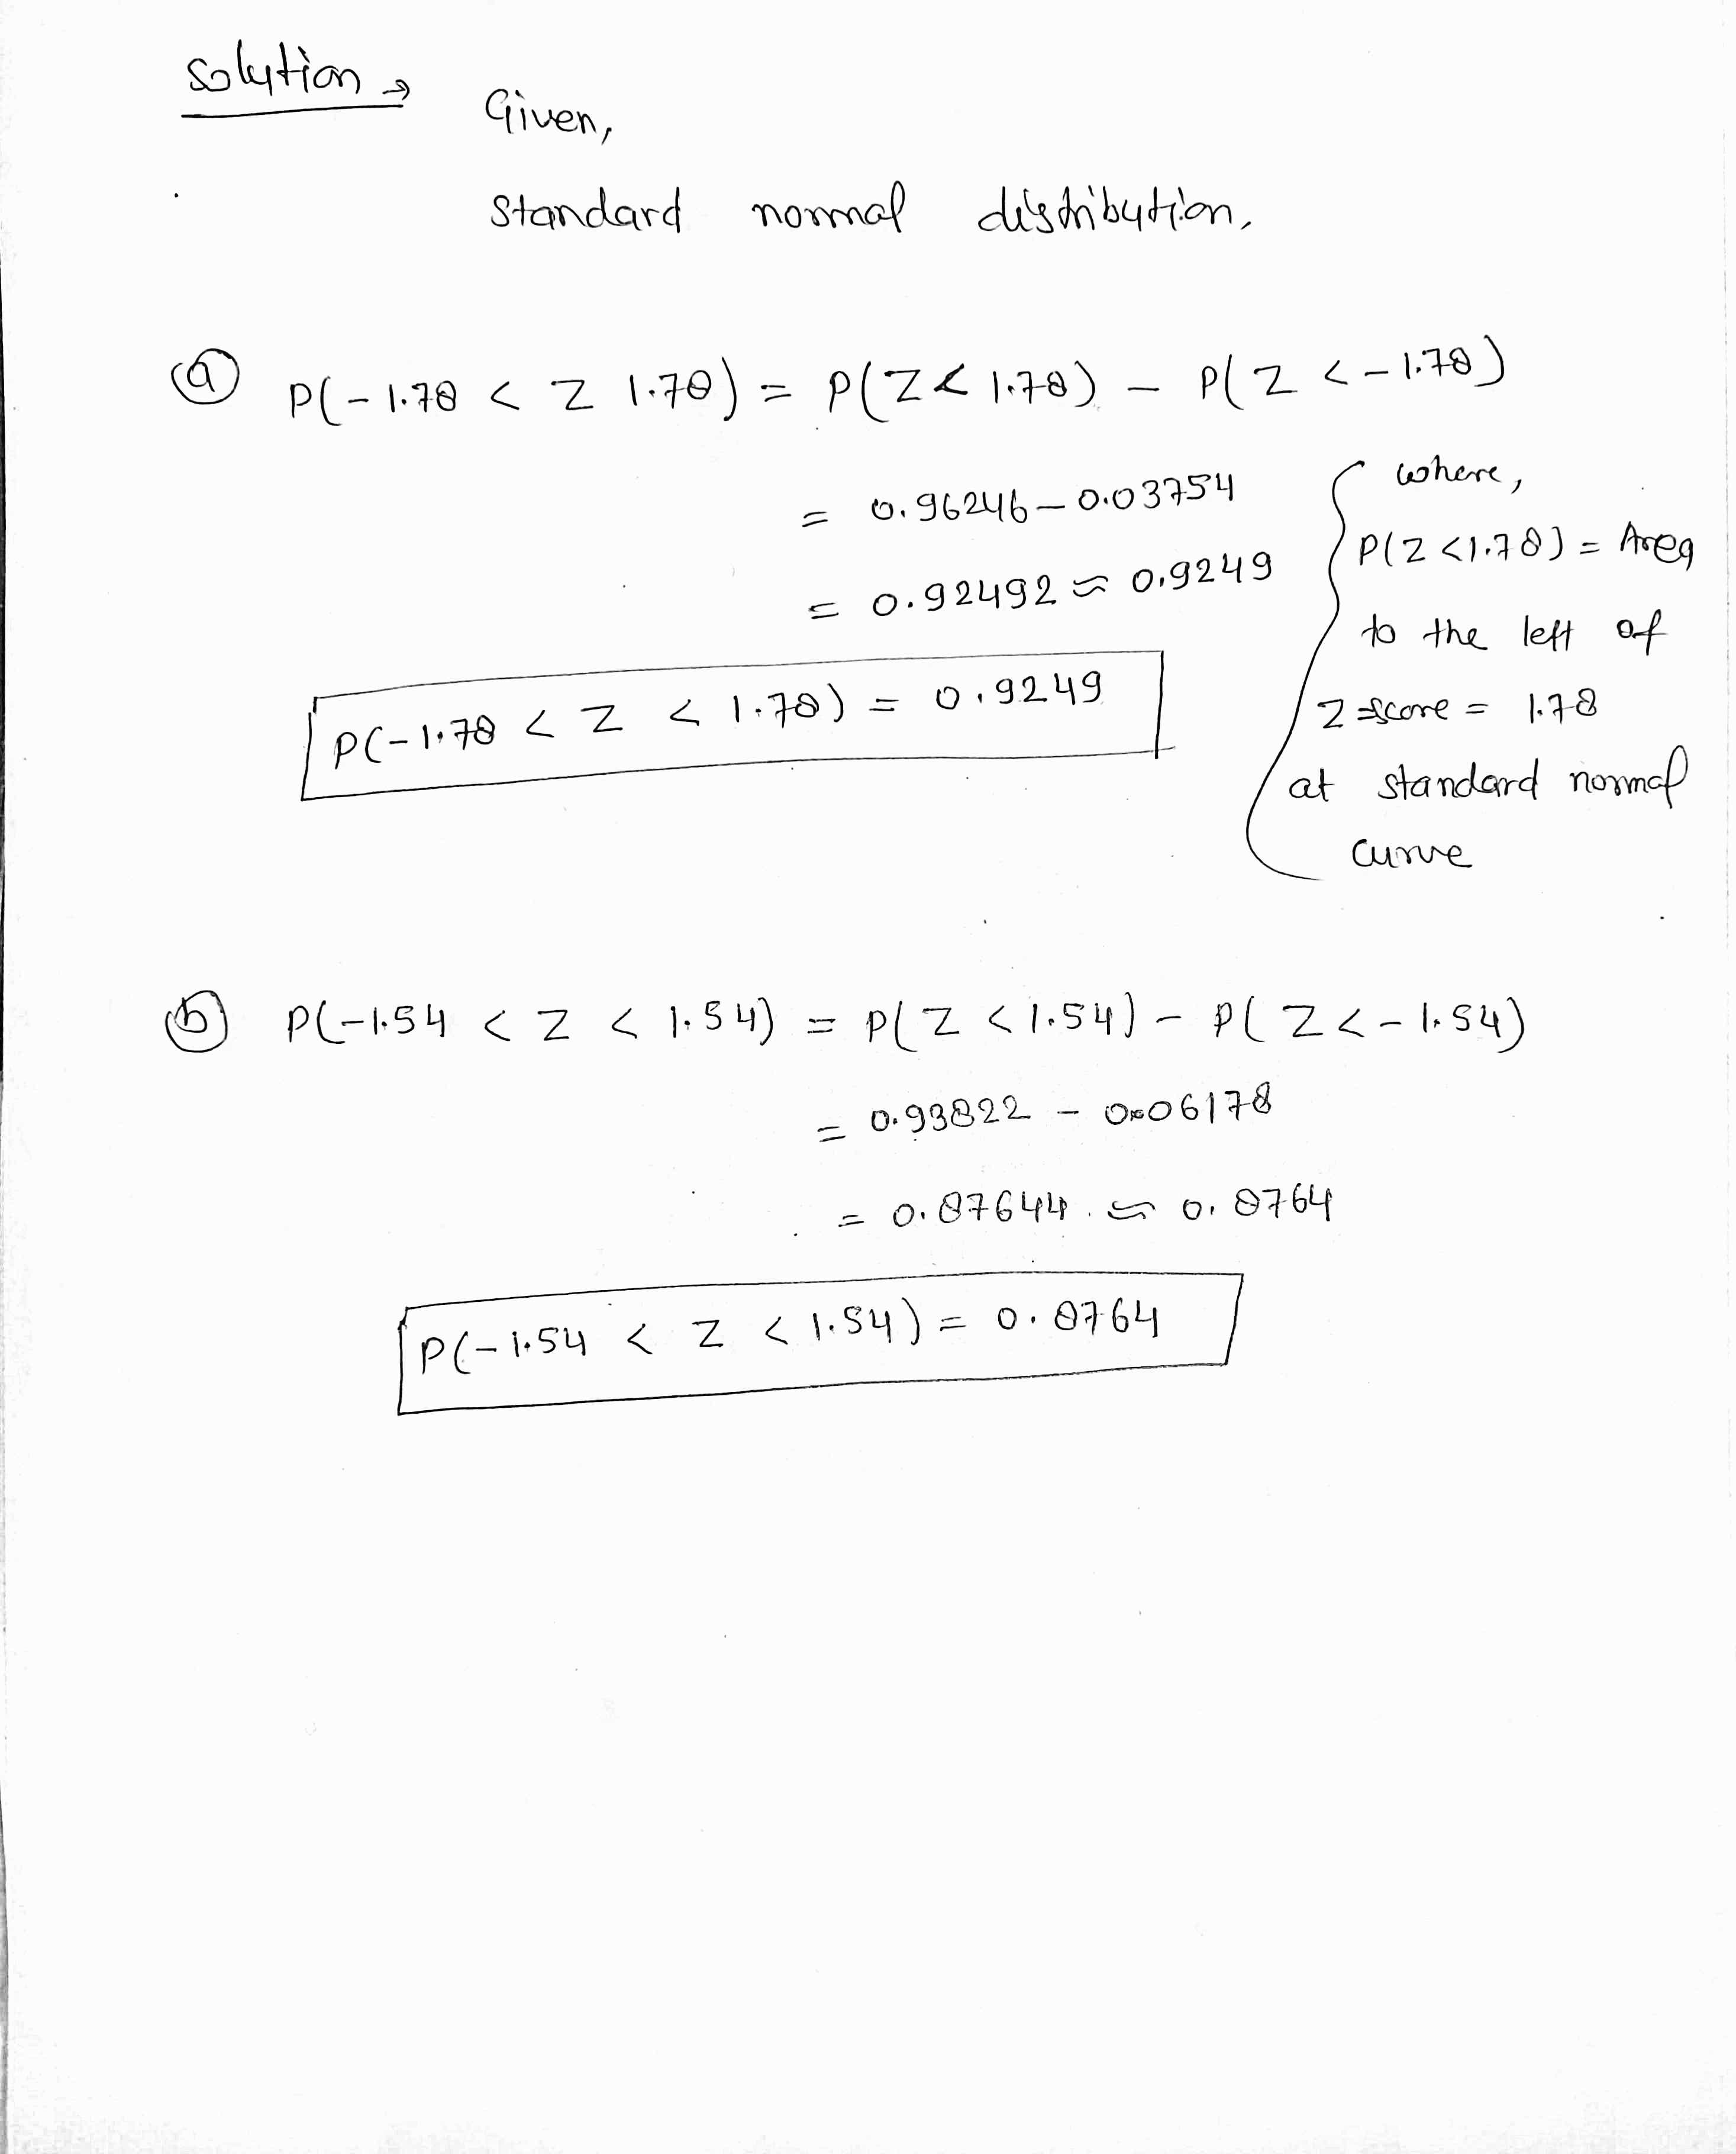 Solution →
Given,
Standard normal distribution,
(a) P(-1.78 < Z 1.78) = P(Z < 1.78) - P(Z < -1.78)
= 0.96246 - 0.03754
= 0.92492 ≈ 0.9249
P(-1.78 < Z < 1.78) = 0.9249
where,
P(Z < 1.78) = Area
to the left of
Z-score = 1.78
at standard normal
curve
(b) P(-1.54 < Z < 1.54) = P(Z < 1.54) - P(Z < -1.54)
= 0.93822 - 0.06178
= 0.87644 ≈ 0.8764
P(-1.54 < Z < 1.54) = 0.8764